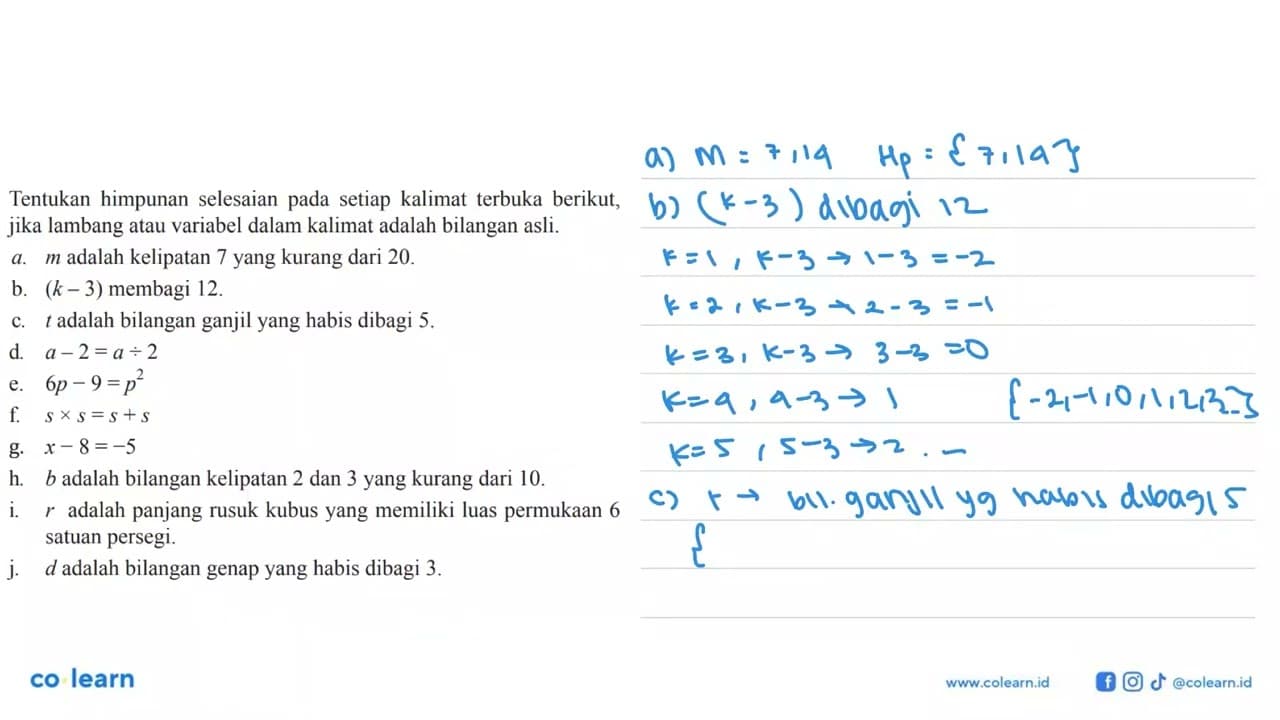 Tentukan himpunan selesaian pada setiap kalimat terbuka berikut,
jika lambang atau variabel dalam kalimat adalah bilangan asli.
a. m adalah kelipatan 7 yang kurang dari 20.
b. (k – 3) membagi 12.
c. t adalah bilangan ganjil yang habis dibagi 5.
d. a – 2 = a ÷ 2
e. 6p – 9 = p²
f. s × s = s + s
g. x – 8 = –5
h. b adalah bilangan kelipatan 2 dan 3 yang kurang dari 10.
i. r adalah panjang rusuk kubus yang memiliki luas permukaan 6
satuan persegi.
j. d adalah bilangan genap yang habis dibagi 3.
a) m = 7,14 Hp = {7,14}
b) (k-3) dibagi 12
k=1, k-3 → 1-3 = -2
k=2, k-3 → 2-3 = -1
k=3, k-3 → 3-3 =0
k=4, 4-3 → 1 {-2,-1,0,1,2,3..}
k=5, 5-3 → 2 . –
c) t → bil. ganjil yg habis dibagi 5
{
co learn
www.colearn.id
@colearn.id